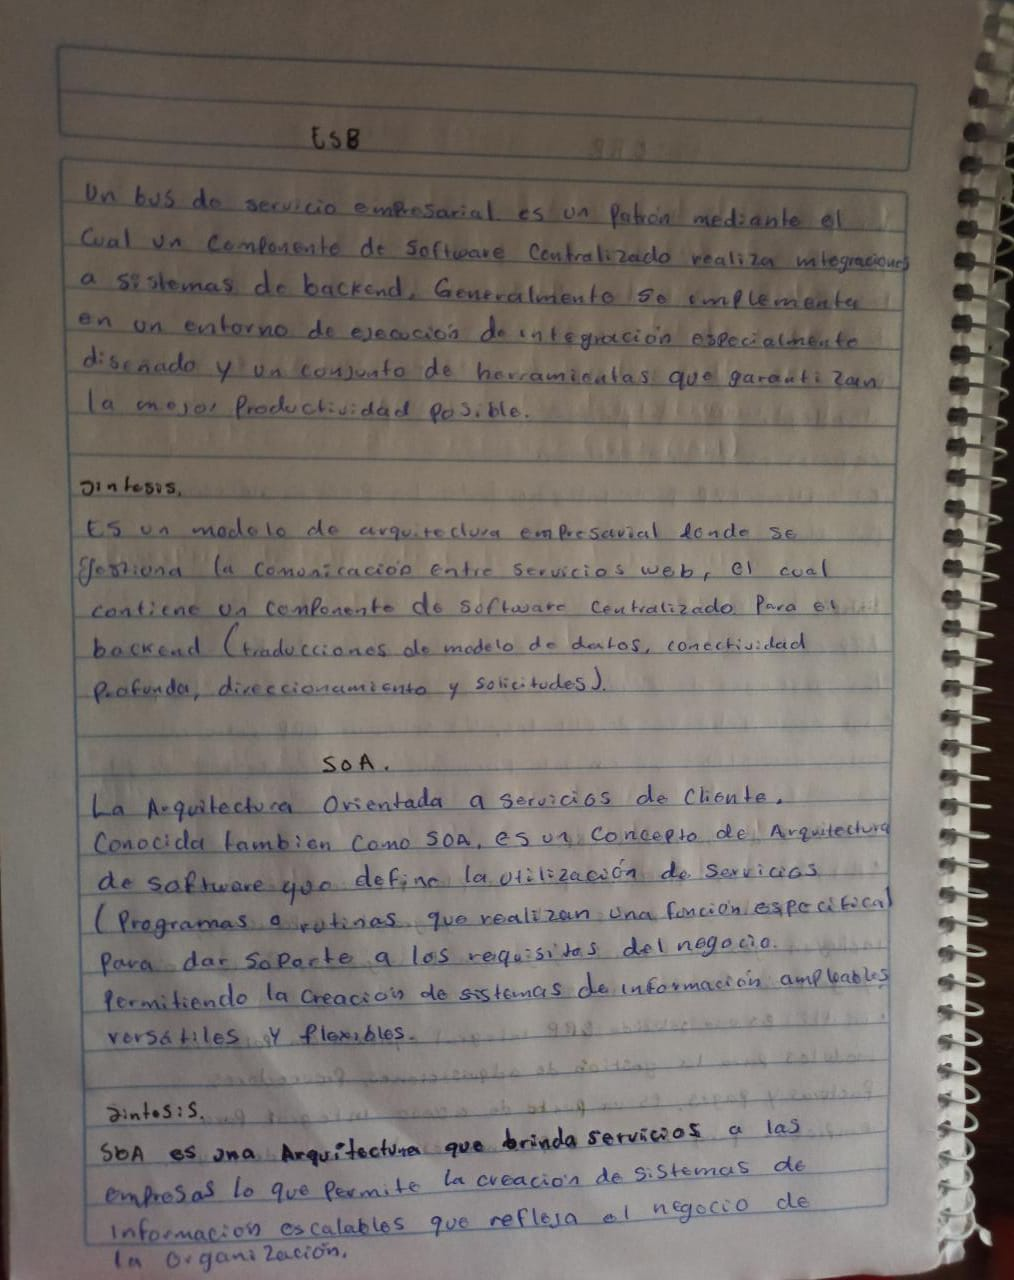 ESB
Un bus de servicio empresarial es un Patrón mediante el
Cual un Componente de Software Centralizado realiza integraciones
a sistemas de backend, Generalmente se implementa
en un entorno de ejecución de integración especialmente
diseñado y un conjunto de herramientas que garantizan
la mejor Productividad posible.
Sintesis.
Es un modelo de arquitectura empresarial donde se
gestiona la comunicación entre servicios web, el cual
contiene un componente de software centralizado Para el
backend (traducciones de modelo de datos, conectividad
Profunda, direccionamiento y solicitudes).
SOA.
La Arquitectura Orientada a servicios de Cliente,
Conocida tambien Como SOA, es un Concepto de Arquitectura
de software que define la utilización de Servicios
(Programas o rutinas que realizan una función especifica)
Para dar Soporte a los requisitos del negocio.
Permitiendo la Creación de sistemas de información ampleables
versátiles y flexibles.
Sintesis.
SOA es una Arquitectura que brinda servicios a las
empresas lo que Permite la creación de sistemas de
información escalables que refleja el negocio de
la organización.